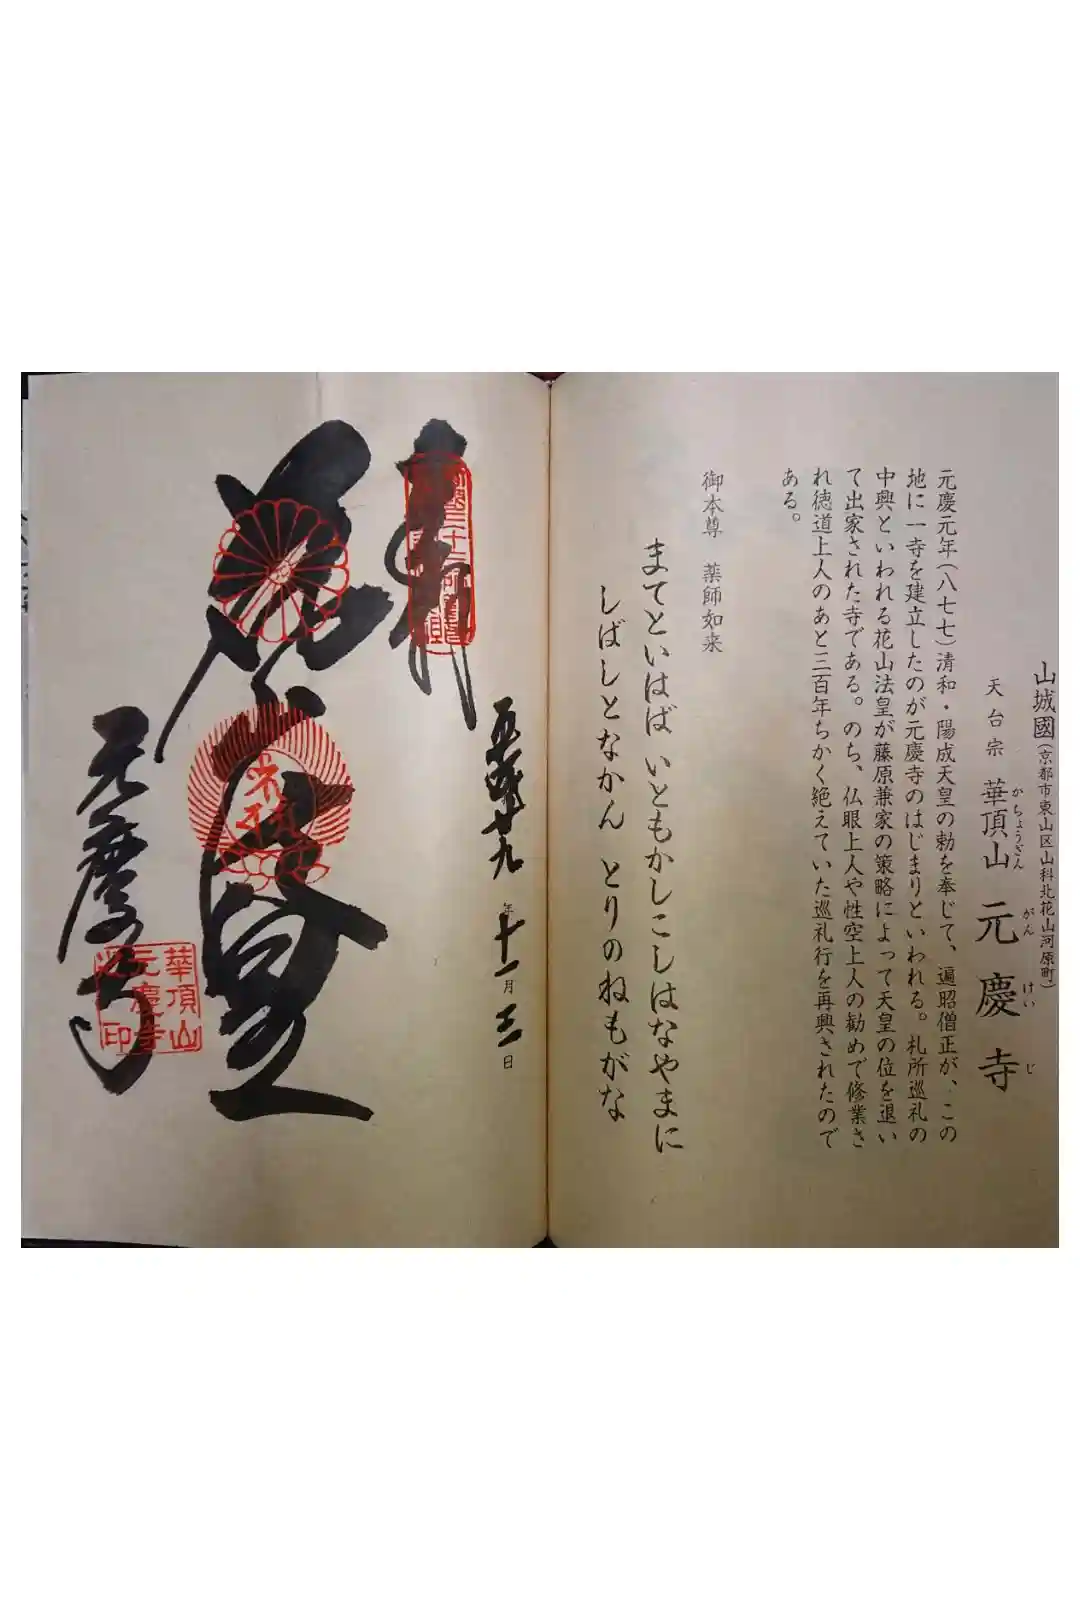 山城國(京都市東山区山科北花山河原町)
天台宗 華頂山 元慶寺
かちょうざん がんけいじ
元慶元年(八七七)清和・陽成天皇の勅を奉じて、遍昭僧正が、この
地に一寺を建立したのが元慶寺のはじまりといわれる。札所巡礼の
中興といわれる花山法皇が藤原兼家の策略によって天皇の位を退い
て出家された寺である。のち、仏眼上人や性空上人の勧めで修業さ
れ徳道上人のあと三百年ちかく絶えていた巡礼行を再興されたので
ある。
御本尊 薬師如来
まてといはば いともかしこしはなやまに
しばしとなかん とりのねもがな
平成廿九年十一月三日
奉拝
元慶寺
華頂山
元慶寺
印